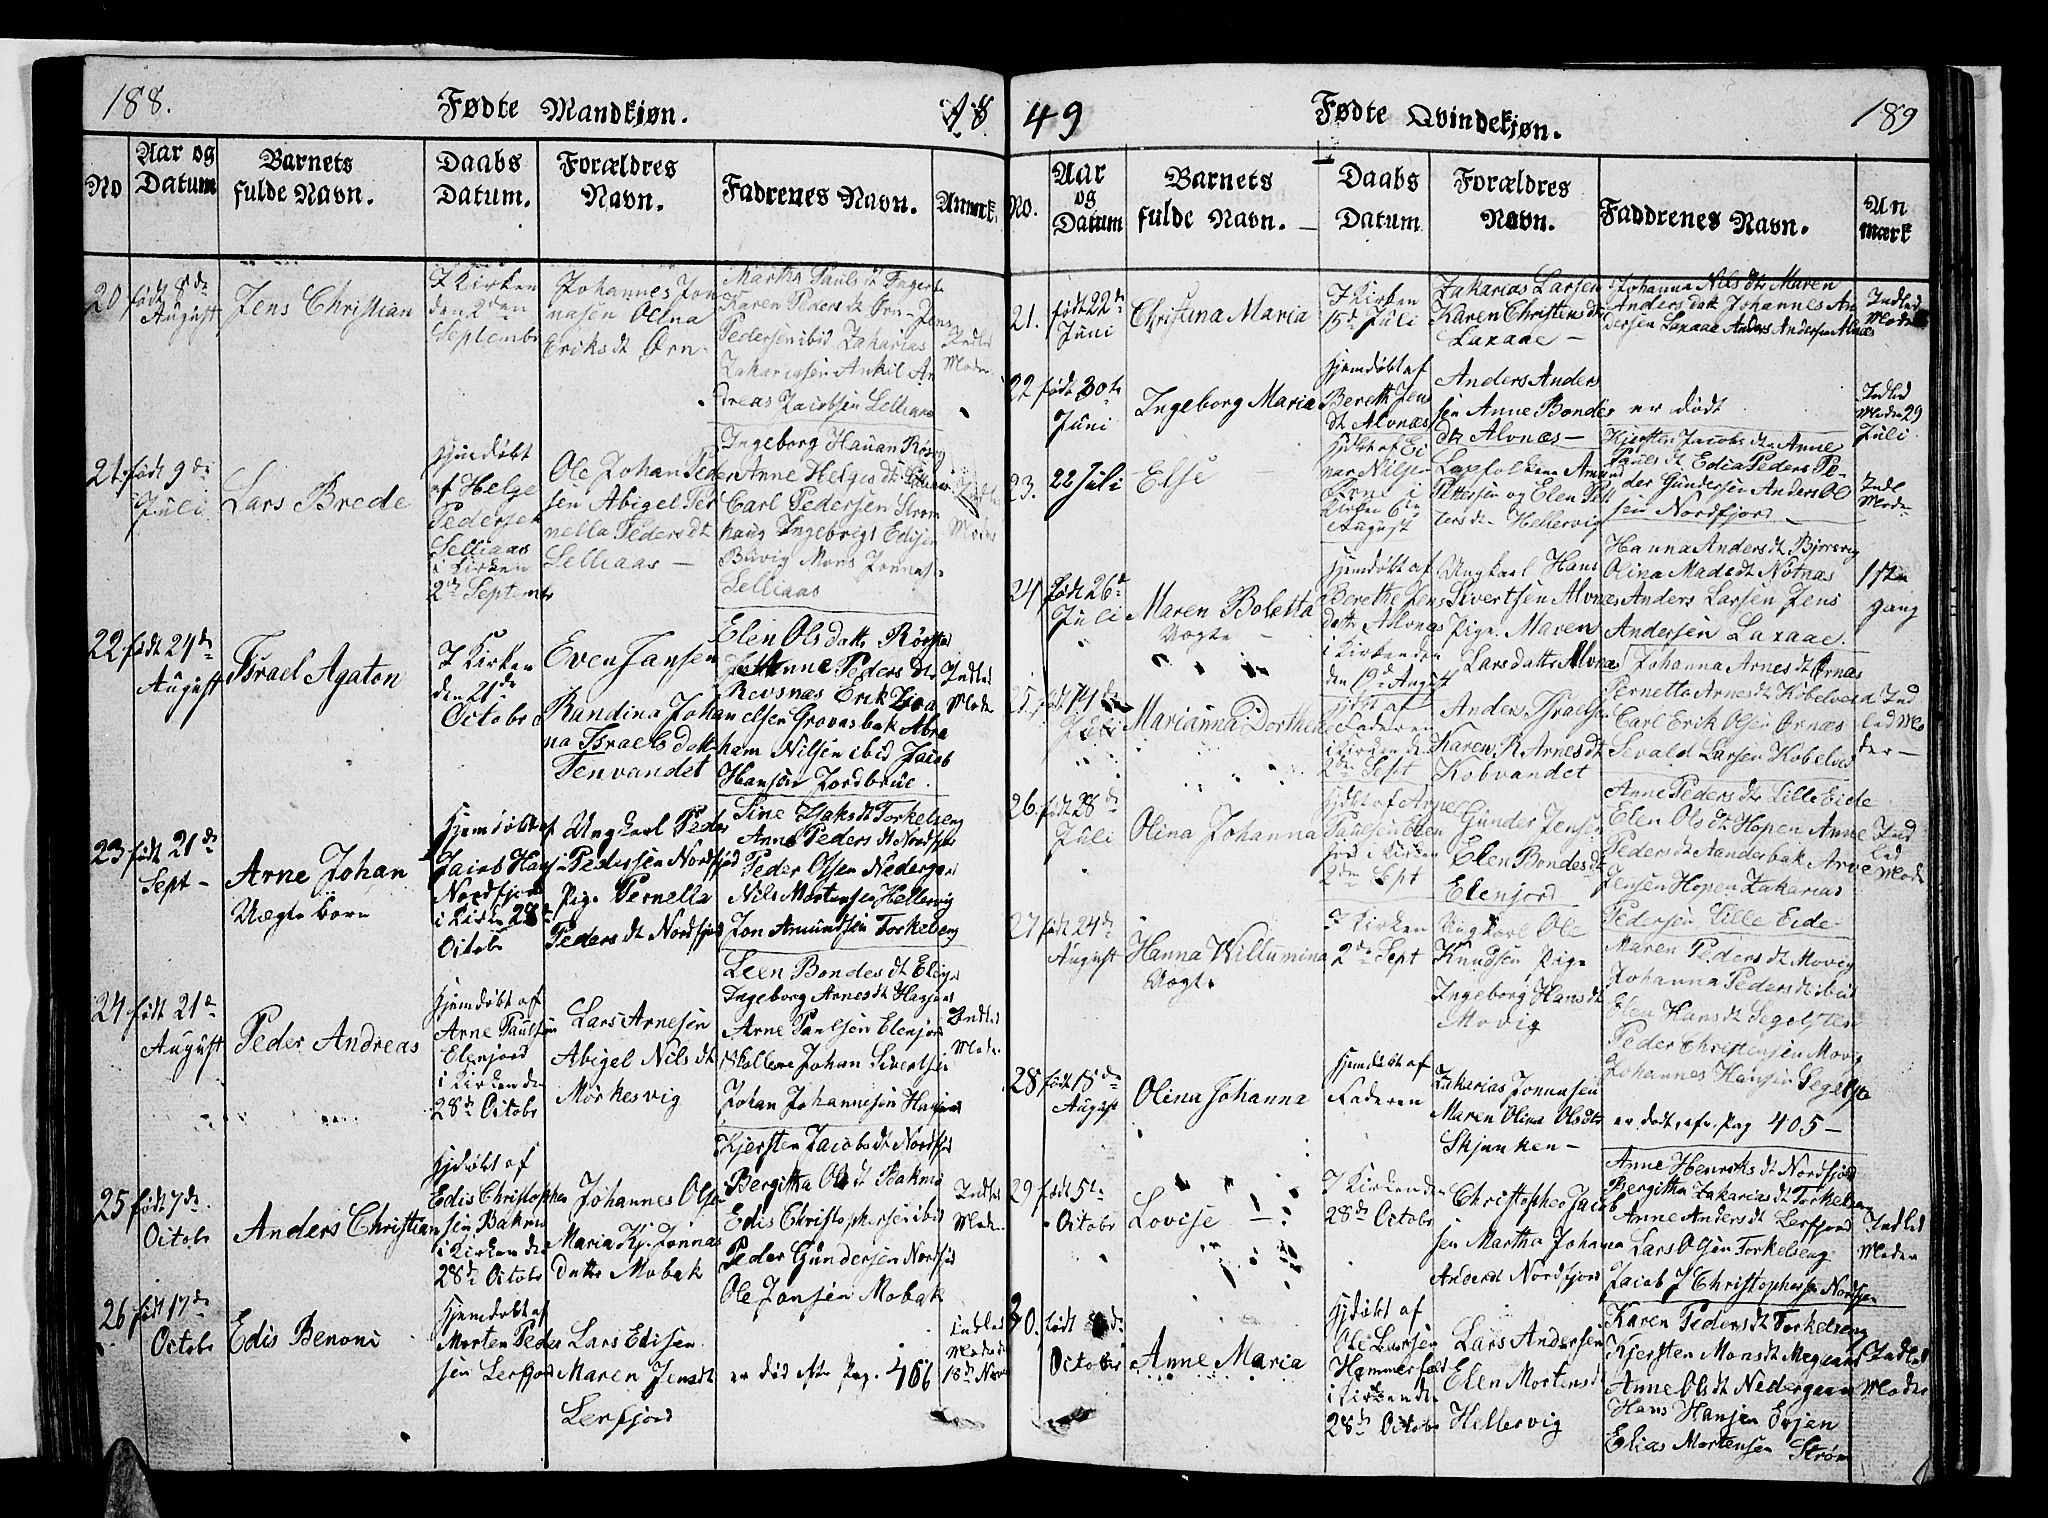 188.
Fødte Mandkjøn.
48
No
Aar og Datum
Barnets fulde Navn.
Daabs Datum.
Forældres Navn.
Fadrenes Navn.
Anmerk.
20
født 8de August
Jens Christian
I Kirken den 2den Septembr
Johannes Jonnasen Olina Eriks dt Ørn
Martha Pauls dt
Karen Peders dt Ørn Jens
Pedersen ibid Zakarias
Zakariasen Ankil An
dreas Jacobsen Selliaas
Indled Moder
21.
født 9de Juli
Lars Brede
Hjemdøbt af Helge Pedersen Selliaas i Kirken 2de Septembr
Ole Johan Pedersen Abigel Pernella Peders dt Selliaas
Ingeborg
Anne Helges dt
Carl Pedersen Strøm
haug Ingebrigt Edisen
Buvig Mons Jonnas
Selliaas
22.
født 24de August
Israel Agaton
I Kirken den 21de Octobr
Even Jansen Randina Johanna Israels datt Tenvandet
Elen Ols datt
Anne Peders dt
Revsnæs Erik
Grovasbak Abra
ham Nilsen ibid Jacob
Hansen Jordbrue
Indled Moder
23
født 21de Sept
Arne Johan
Uægte barn
Hjemdøbt af Jacob Hansen Nordfjord i Kirken 28de Octobr
Ungkarl Peder Pedersen Nordfjord Pige Pernella Peders dt Nordfjord
Sine Isaks dt Torkelseng
Anne Peders dt Nordfjor
Peder Olsen Nedergaar
Nils Mortensen Hellervig
Jon Amundsen Torkelseng
24
født 21de August
Peder Andreas
Hjemdøbt af Arne Paulsen Elenjord i Kirken den 28de Octobr
Lars Arnesen Abigel Nils dt Mørkesvig
Leen Bondes dt
Ingeborg Arnes dt
Arne Paulsen Elenjord
Johan Sivertsen
Johan Johannesen
Indled Moder
25
født 7de Octobr
Anders Christian
Hjdøbt af Edis Christophersen Bakmo i Kirken den 28de Octobr
Johannes Olsen Maria Kj. Jonnas datter Mobak
Kjersten Jacobs dt Nordfjord
Bergitha Ols dt Bakmo
Edis Christophersen ibid
Peder Gundersen Nordfjord
Ole Jansen Mobak
Indled Moder
26
født 17de Octobr
Edis Benoni
Hjemdøbt af Morten Pedersen Lerfjord
Lars Edisen Maren Jens dt Lerfjord
er død efter Pag. 406
Indled Moder 18de Novbr
49
Fødte Qvindekjøn.
189
No.
Aar og Datum
Barnets fulde Navn.
Daabs Datum
Forældres Navn.
Faddrenes Navn.
An mærk
21.
født 22de Juni
Christina Maria
I Kirken 15de Juli
Zakarias Larsen Karen Christens dt Laxaae
Johanna Nils dtr Maren
Anders datt Johannes An
dersen Laxaae Anders Andersen Alvnæs
Indled Moder
22
født 30te Juni
Ingeborg Maria
Hjemdøbt af Bereth Jens dtr Alvnæs
Anders Andersen Anne Bondes dtr Alvnæs
er dødt
Indled Moder 29 Juli
23.
22 Juli
Else
Hjdbt af Einar Nilsen i Kirken 6te August
Lapfolkene Amund Pettersen og Elen Petters dtr Hellervig
Kjersten Jacobs dtr Anne
Pauls dt Edia Peders Pe-
der Gundersen Anders Ol
sen Nordfjord
Indl Moder
24
født 26de Juli
Maren Boletta
Uægte
Hjemdøbt af Berethe Jens datt Alvnæs i Kirken den 19de August
Ungkarl Hans Sivertsen Alvnæs Pige Maren Lars datter Alvnæs
Hanna Anders dt Bjørnvig
Olina Mads dt Nøtnæs
Anders Larsen Jens
Andersen Laxaae.
1ste gang
25.
født 14de Juli
Marianna Dorthea
Hjdbt af Faderen i Kirken den 2den Sept
Anders Israelsen Karen K Arnes dt Kobvandet
Johanna Arnes dt Ørnæs
Pernetta Arnes dt Kobelved
Carl Erik Olsen Ørnæs
Sevald Larsen Kobelved
Indled Moder
26.
født 28de Juli
Olina Johanna
Hjdbt af Arne Paulsen Elenjord i Kirken 2den Sept
Gunder Jensen Elen Bondes dt Elenjord
Anne Peders dtr Lille Eide
Elen Ols dt Hopen Anne
Peders dt Aanderbak Arne
Jensen Hopen Zakarias
Pedersen Lille Eide
Indled Moder
27
født 24de August
Hanna Willumina
Uægte
I Kirken 2de Sept
Ungkarl Ole Knudsen Pige Ingeborg Hans dt Movig
Maren Peders dt Movig
Johanna Peders dt ibid
Elen Hans dt Segelsten
Peder Christensen Movig
Johannes Hansen Segelst
28
født 18de August
Olina Johanna
Hjemdøbt af Faderen
Zakarias Jonnasen Maren Olina Ols dtr Skjunken
er dødt, efr. Pag 405
29
født 5te Octobr
Lovise
I Kirken den 28de Octobr
Christopher Jacobsen Martha Johanna Anders dt Nordfjord
Anne Henriks dt Nordfjord
Bergitha Zakarias dt Torkelseng
Anne Anders dt Lerfjord
Lars Olsen Torkelseng
Jacob J Christophersen Nordfjord
Indled Moder
30.
født 8de October
Anne Maria
Hjdøbt af Ole Larsen Hammerfald i Kirken den 28de Octobr
Lars Andersen Elen Mortens dt Hellervig
Karen Peders dt Torkelseng
Kjersten Mons dt Megaard
Anne Ols dt Nedergaard
Hans Hansen Evjen
Elias Mortensen Strøm
Indled Moder